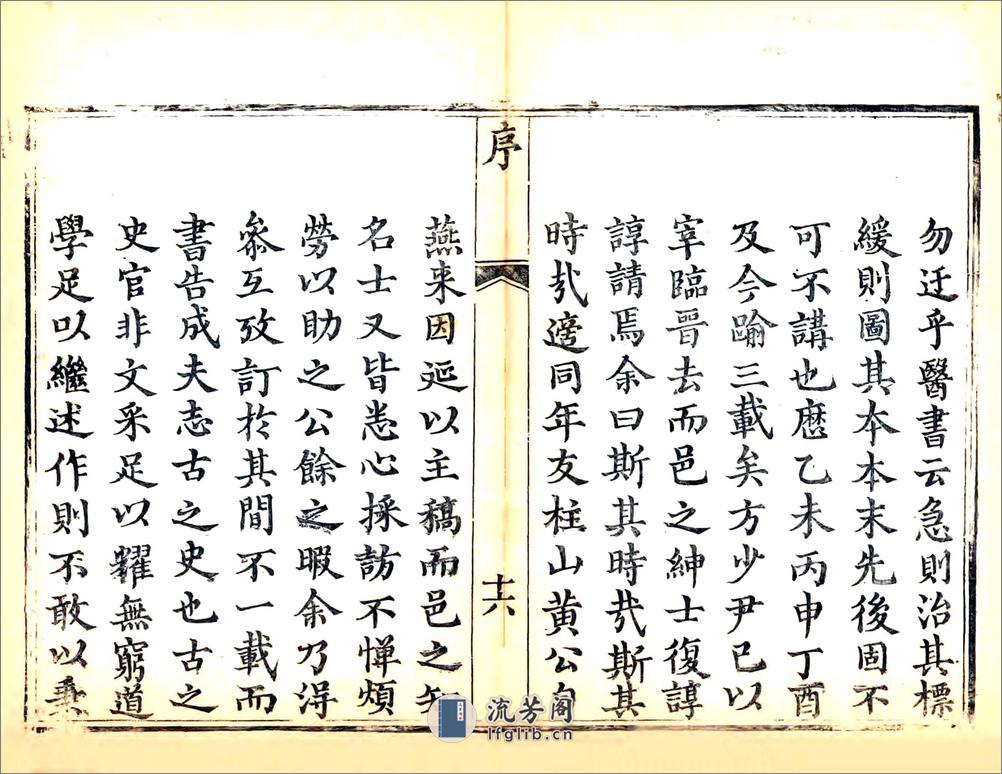 勿迂乎醫書云急則治其標
緩則圖其本本末先後固不
可不講也厯乙未丙申丁酉
及今踰三載矣方少尹已以
宰臨晉去而邑之紳士復諄
諄請焉余曰斯其時㢤斯其
時㢤適同年友柱山黃公自
序
十六
燕来因延以主稿而邑之知
名士又皆悉心採訪不憚煩
勞以助之公餘之暇余乃淂
叅互攷訂扵其間不一載而
書告成夫志古之史也古之
史官非文采足以耀無窮道
學足以繼述作則不敢以秉
流芳阁
lfglib.cn